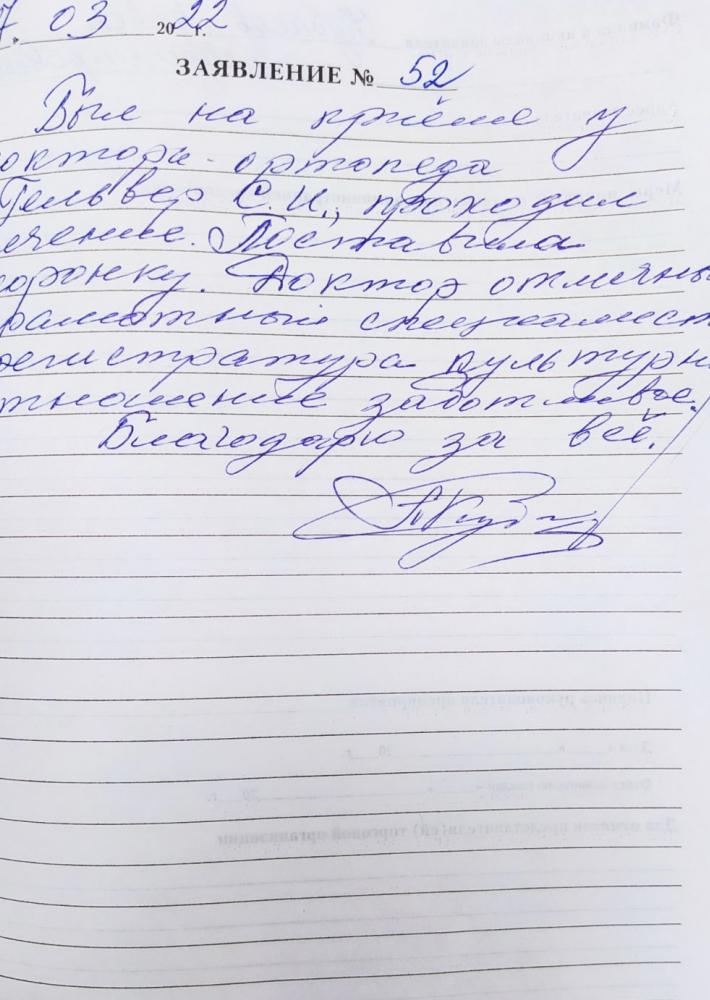 7. 03 2022 г.
ЗАЯВЛЕНИЕ № 52
Был на приёме у
октора-ортопеда
Гельвер С.И., проходил
ечение. Поставила
оронку. Доктор отличны
рамотный специалист
егистратура культурн
тношение заботливое.
Благодарю за всё.